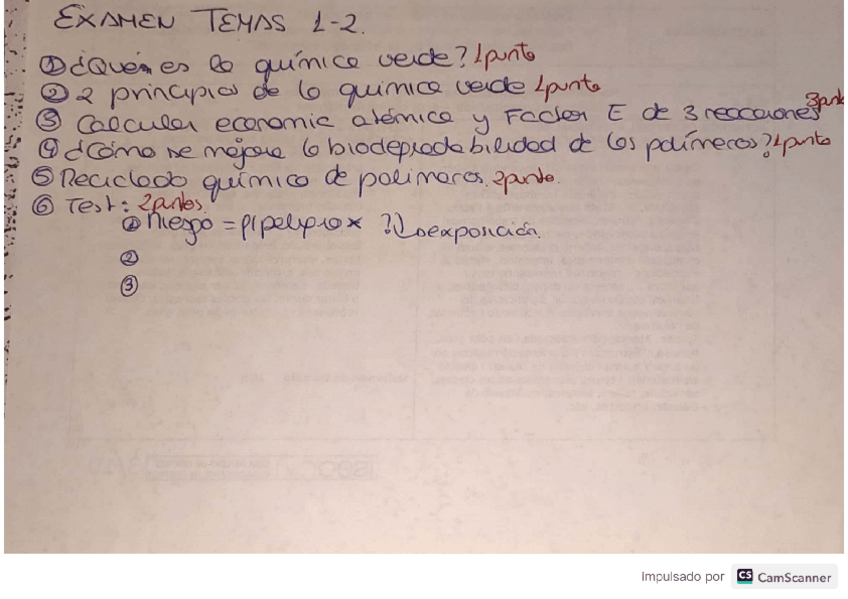 EXAMEN TEMAS 1-2.
① ¿Qué es la química verde? 1punto
② 2 principios de la química verde 1punto
③ Calcular economia atómica y Factor E de 3 reacciones 3punt
④ ¿Cómo se mejora la biodegradabilidad de los polímeros? 1punto
⑤ Reciclado químico de polimeros. 2punto.
⑥ Test: 2puntos.
① Riesgo = f(peligro x ?) exposición.
②
③
Impulsado por CS CamScanner